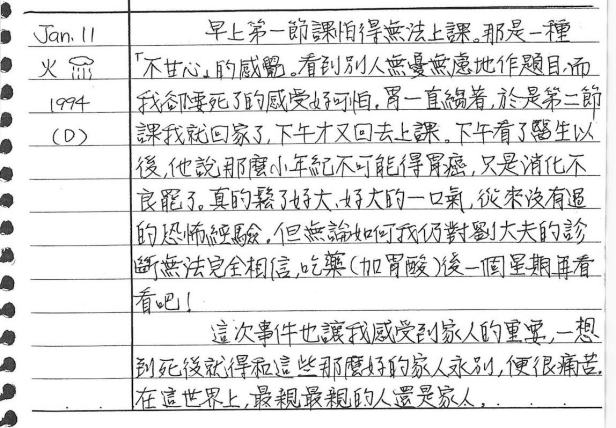 Jan. 11 早上第一節課怕得無法上課。那是一種
火 「不甘心」的感覺。看到別人無憂無慮地作題目,而
1994 我卻要死了的感受好可怕,胃一直縮著,於是第二節
(D) 課我就回家了,下午才又回去上課。下午看了醫生以
後,他說那麼小年紀不可能得胃癌,只是消化不
良罷了。真的鬆了好大、好大的一口氣,從來沒有過
的恐怖經驗。但無論如何我仍對劉大夫的診
斷無法完全相信,吃藥(加胃酸)後一個星期再看
看吧!
這次事件也讓我感受到家人的重要,一想
到死後就得和這些那麼好的家人永別,便很痛苦。
在這世界上,最親最親的人還是家人。